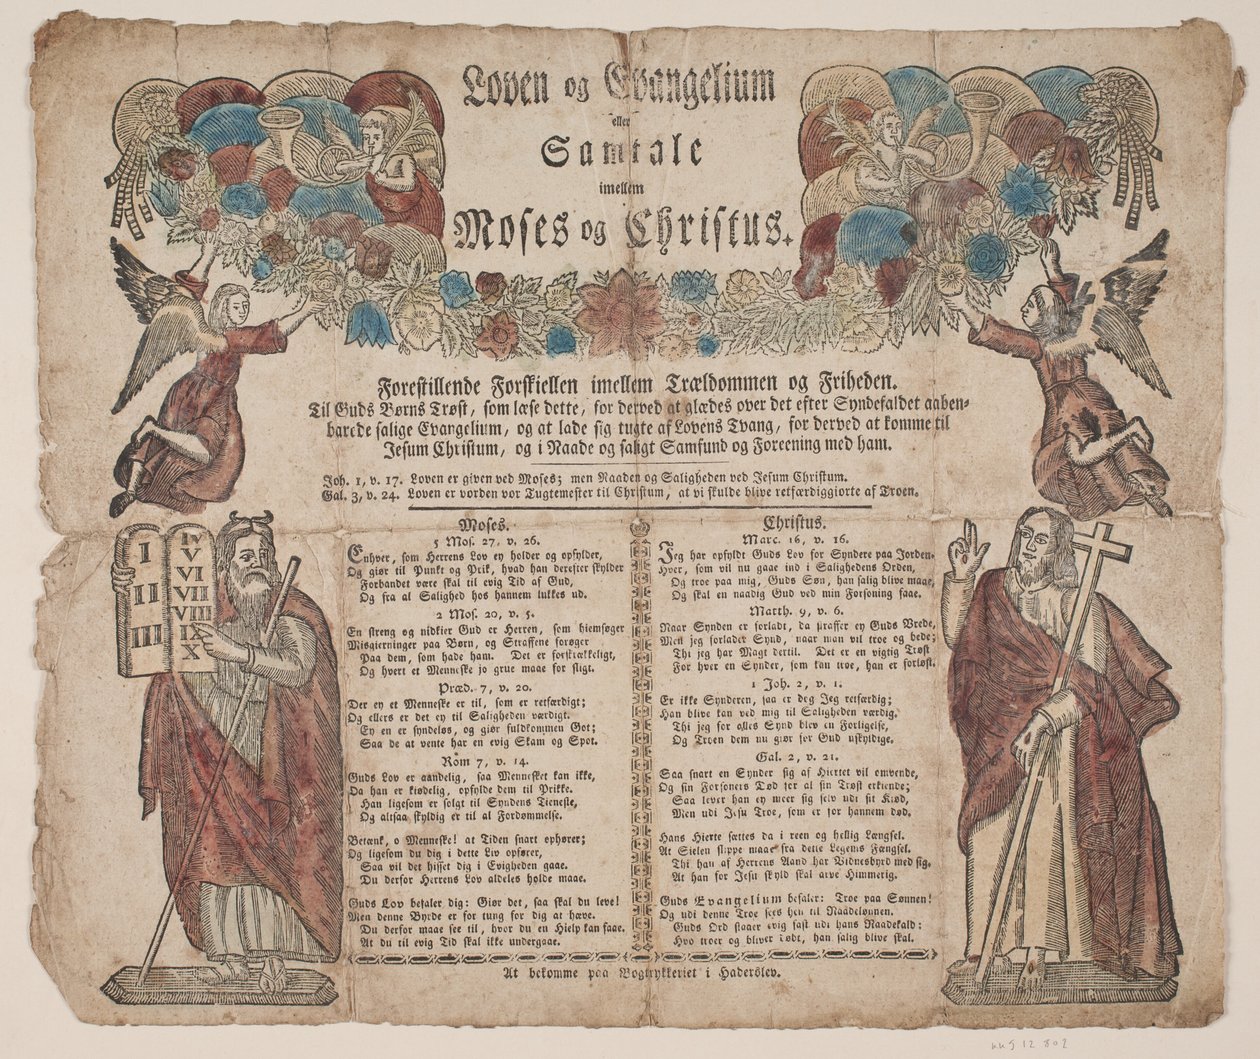 Loven og Evangelium
eller
Samtale
imellem
Moses og Christus.
Forestillende Forskiellen imellem Trældommen og Friheden.
Til Guds Børns Trøst, som læse dette, for derved at glædes over det efter Syndefaldet aaben-
barede salige Evangelium, og at lade sig tugte af Lovens Tvang, for derved at komme til
Jesum Christum, og i Naade og saligt Samfund og Foreening med ham.
Joh. 1, v. 17. Loven er given ved Moses; men Naaden og Saligheden ved Jesum Christum.
Gal. 3, v. 24. Loven er vorden vor Tugtemester til Christum, at vi skulde blive retfærdiggiorte af Troen.
I
II
III
IV
V
VI
VII
VIII
IX
X
Moses.
5 Mos. 27, v. 26.
Enhver, som Herrens Lov ey holder og opfylder,
Og giør til Punkt og Prik, hvad han derefter skylder
Forbandet være skal til evig Tid af Gud,
Og fra al Salighed hos hannem lukkes ud.
2 Mos. 20, v. 5.
En streng og nidkier Gud er Herren, som hiemsøger
Misgierninger paa Børn, og Straffene forøger
Paa dem, som hade ham. Det er forskrækkeligt,
Og hvert et Menneske jo grue maae for sligt.
Præd. 7, v. 20.
Der ey et Menneske er til, som er retfærdigt;
Og ellers er det ey til Saligheden værdigt.
Ey en er syndeløs, og giør fuldkommen Got;
Saa de at vente har en evig Skam og Spot.
Rom 7, v. 14.
Guds Lov er aandelig, saa Mennesket kan ikke,
Da han er kiødelig, opfylde dem til Prikke.
Han ligesom er solgt til Syndens Tieneste,
Og altsaa skyldig er til al Fordømmelse.
Betænk, o Menneske! at Tiden snart ophører;
Og ligesom du dig i dette Liv opfører,
Saa vil det hisset dig i Evigheden gaae.
Du derfor Herrens Lov aldeles holde maae.
Guds Lov befaler dig: Giør det, saa skal du leve!
Men denne Byrde er for tung for dig at hæve.
Du derfor maae see til, hvor du en Hielp kan faae.
At du til evig Tid skal ikke undergaae.
Christus.
Marc. 16, v. 16.
Jeg har opfyldt Guds Lov for Syndere paa Jorden.
Hver, som vil nu gaae ind i Salighedens Orden,
Og troe paa mig, Guds Søn, han salig blive maae,
Og skal en naadig Gud ved min Forsoning faae.
Matth. 9, v. 6.
Naar Synden er forladt, da straffer ey Guds Vrede,
Men jeg forlader Synd, naar man vil troe og bede;
Thi jeg har Magt dertil. Det er en vigtig Trøst
For hver en Synder, som kan troe, han er forløst.
1 Joh. 2, v. 1.
Er ikke Synderen, saa er dog Jeg retfærdig;
Han blive kan ved mig til Saligheden værdig.
Thi jeg for alles Synd blev en Forligelse,
Og Troen dem nu giør for Gud uskyldige.
Gal. 2, v. 21.
Saa snart en Synder sig af Hiertet vil omvende,
Og sin Forsoners Død for al sin Trøst erkende;
Saa lever han ey meer sig selv udi sit Kiød,
Men udi Jesu Troe, som er for hannem død.
Hans Hierte sættes da i reen og hellig Længsel.
At Sielen slippe maae fra dette Legems Fængsel.
Thi han af Herrens Aand har Vidnesbyrd med sig,
At han for Jesu skyld skal arve Himmerig.
Guds Evangelium befaler: Troe paa Sønnen!
Og udi denne Troe sees hen til Naadelønnen.
Guds Ord staaer evig fast udi hans Naadekald:
Hvo troer og bliver døbt, han salig blive skal.
At bekomme paa Bogtrykkeriet i Haderslev.